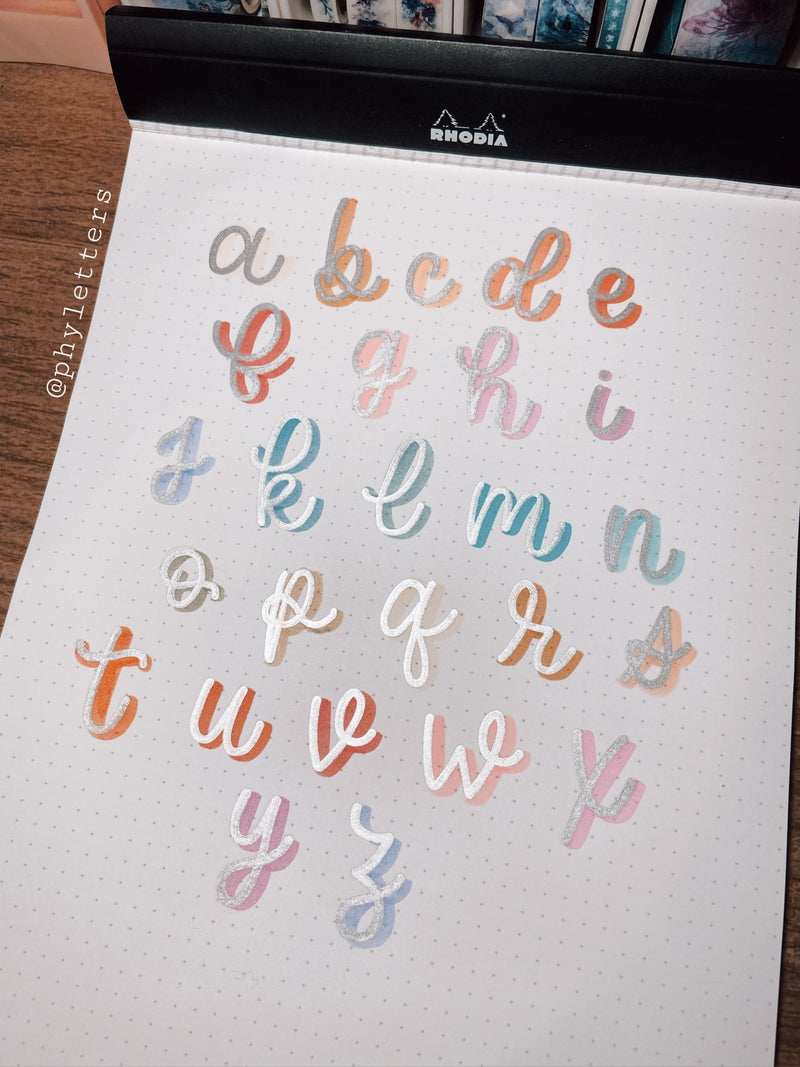 RHODIA
@phyletters
a b c d e
f g h i
j k l m n
o p q r s
t u v w x
y z